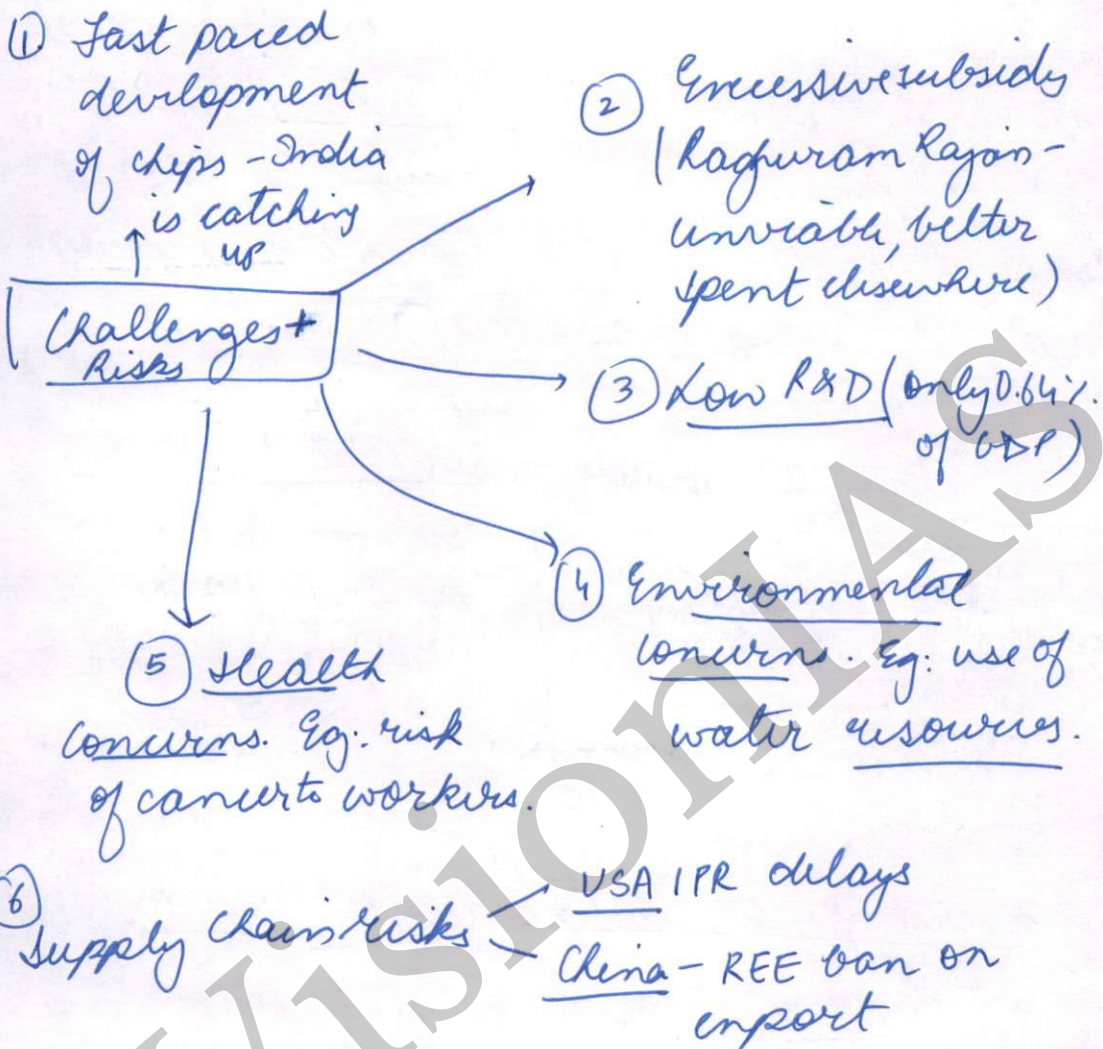 ① Fast paced
development
of chips - India
is catching
up
Challenges +
Risks
② Excessive subsidy
(Raghuram Rajan -
unviable, better
spent elsewhere)
③ Low R&D (only 0.64%
of GDP)
④ Environmental
concerns. Eg: use of
water resources.
⑤ Health
concerns. Eg: risk
of cancer to workers.
⑥ Supply chain risks
USA IPR delays
China - REE ban on
export
VisionIAS